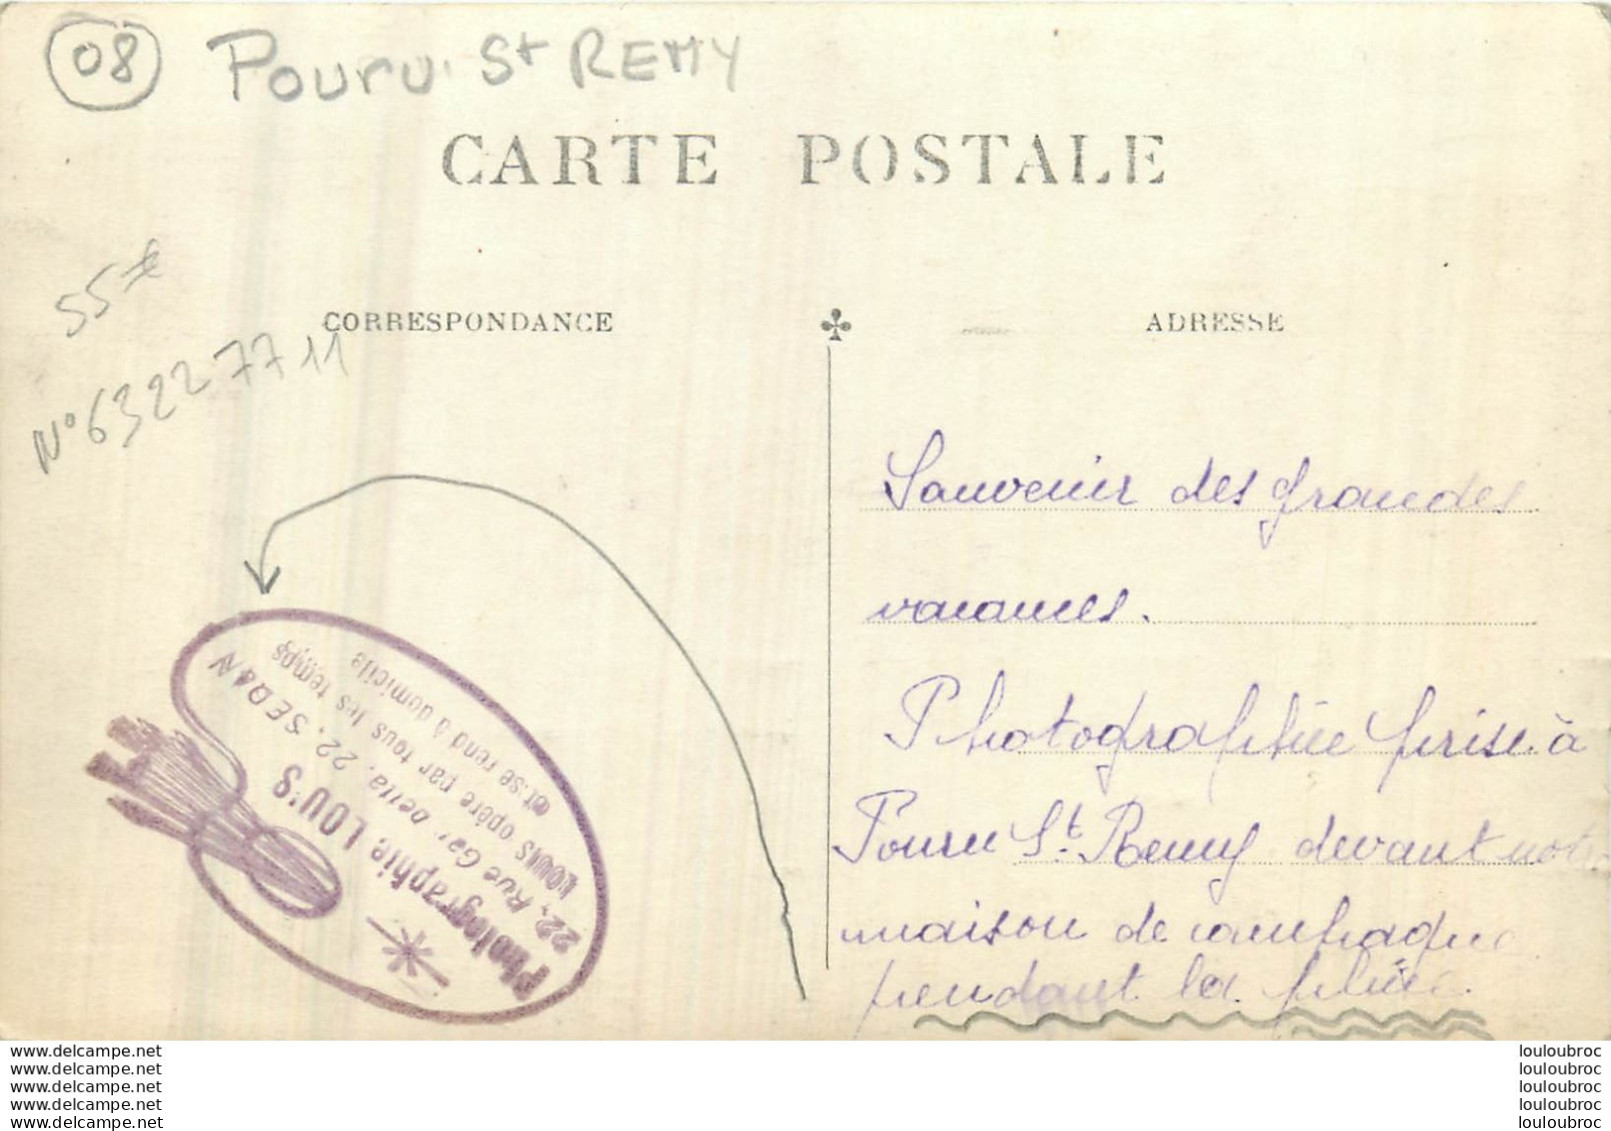 08 Pouru St REMY
CARTE POSTALE
55€
N°632277 11
CORRESPONDANCE
ADRESSE
Souvenir des grandes
vacances.
Photographie prise à
Pouru St. Remy devant notre
maison de campagne
pendant la pluie.
Photographie LOU'S
22, Rue Gambetta, 22. SEDAN
LOUIS opère par tous les temps
et se rend à domicile
www.delcampe.net
www.delcampe.net
www.delcampe.net
www.delcampe.net
www.delcampe.net
louloubroc
louloubroc
louloubroc
louloubroc
louloubroc